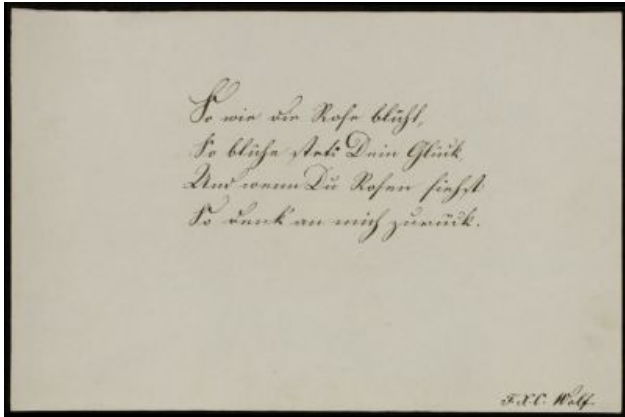 So wie die Rose blüht,
So blühe stets Dein Glück,
Und wenn Du Rosen siehst
So denk' an mich zurück.
F. X. C. Wolf